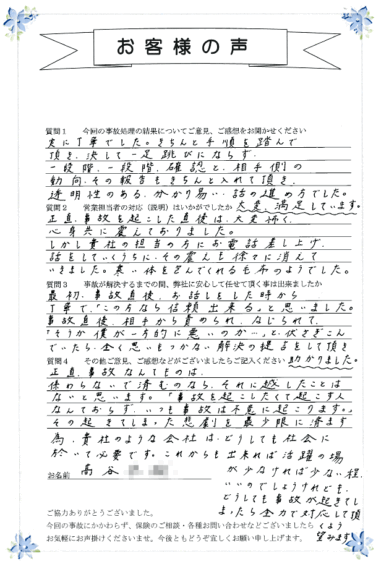 お客様の声
質問1 今回の事故処理の結果についてご意見、ご感想をお聞かせください
実に丁寧でした。きちんと手順を踏んで
頂き、決して一足跳びにならず、
一段階、一段階、確認と、相手側の
動向、その報告もきちんと入れて頂き、
透明性のある、分かり易い、話の進め方でした。
質問2 営業担当者の対応(説明)はいかがでしたか 大変満足しています。
正直、事故を起こした直後は、大変怖く、
心身共に震えておりました。
しかし貴社の担当の方にお電話差し上げ、
話をしていくうちに、その震えも徐々に消えて
いきました。寒い体を包んでくれる毛布のようでした。
質問3 事故が解決するまでの間、弊社に安心して任せて頂く事は出来ましたか
最初、事故直後、お話しをした時から
丁寧で、"この方なら信頼出来る。"と思いました。
事故直後、相手から責められ、なじられて、
"そうか僕が一方的に悪いのか…"と、伏さぎこん
でいたら、全く思いもつかない解決の提言をして頂き
質問4 その他ご意見、ご感想などがございましたらご記入ください 助かりました。
正直、事故なんてものは、
係わらないで済むのなら、それに越したことは
ないと思います。「事故を起こしたくて起こす人
なんておらず、いつも事故は不意に起こります。」
その起きてしまった悲劇を最少限に済ます
為、貴社のような会社は、どうしても社会に
於いて必要です。これからも出来れば活躍の場
お名前 高谷
が少なければ少ない程、
いいのでしょうけれども、
どうしても事故が起きてし
まったら全力で対応して頂
くよう
望みます。
ご協力ありがとうございました。
今回の事故にかかわらず、保険のご相談・各種お問い合わせなどございましたら
お気軽にお声掛けくださいませ。今後ともどうぞ宜しくお願い申し上げます。